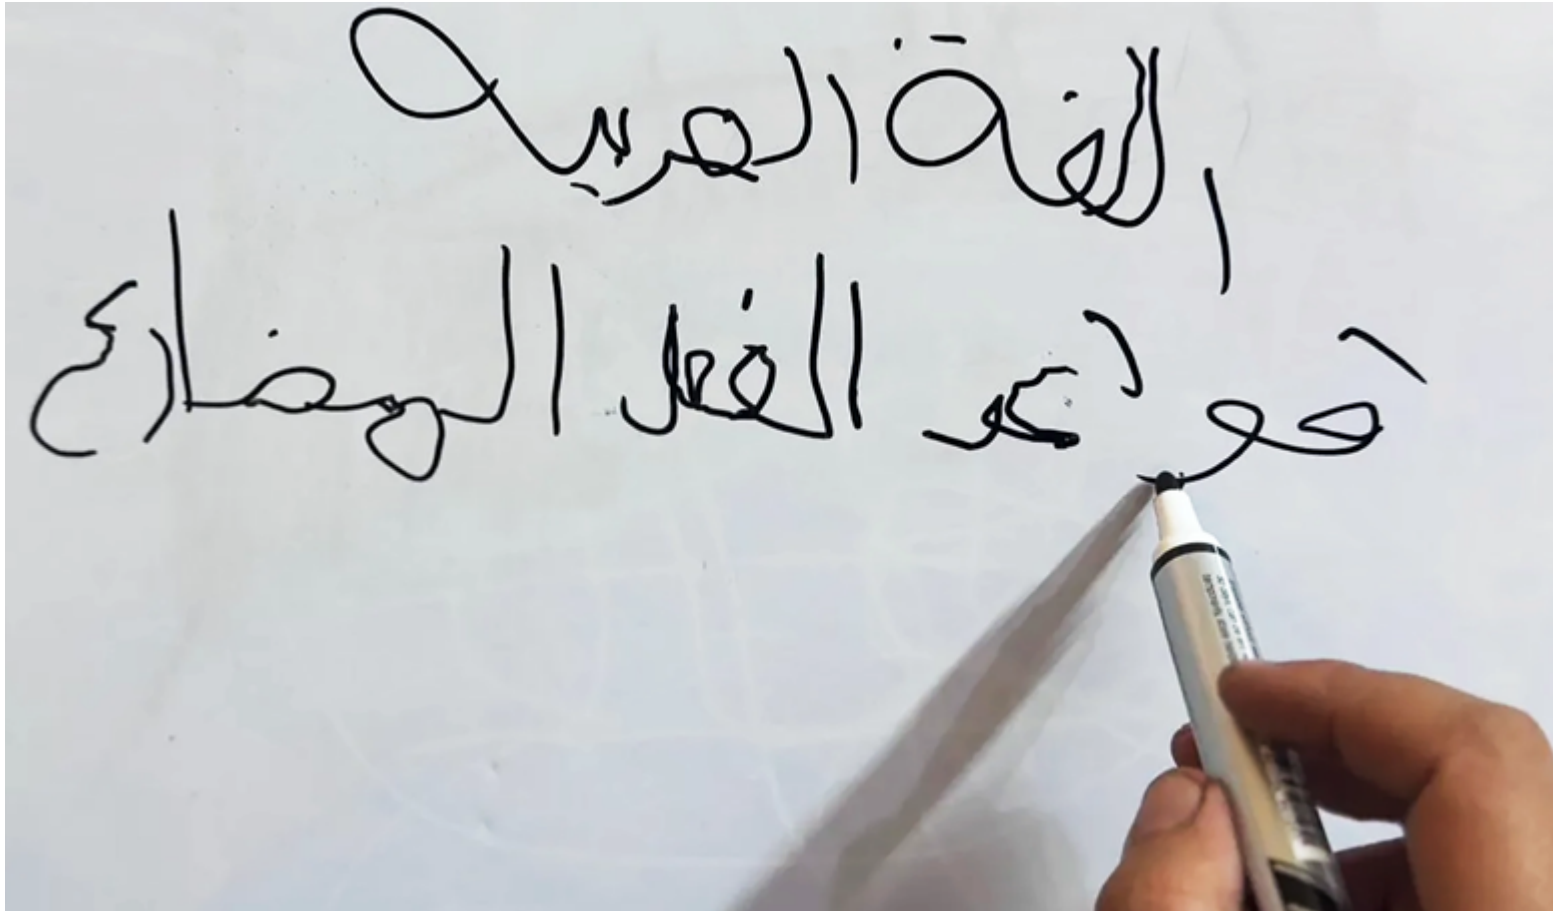 اللغة العربيه
قواعد الفعل المضارع